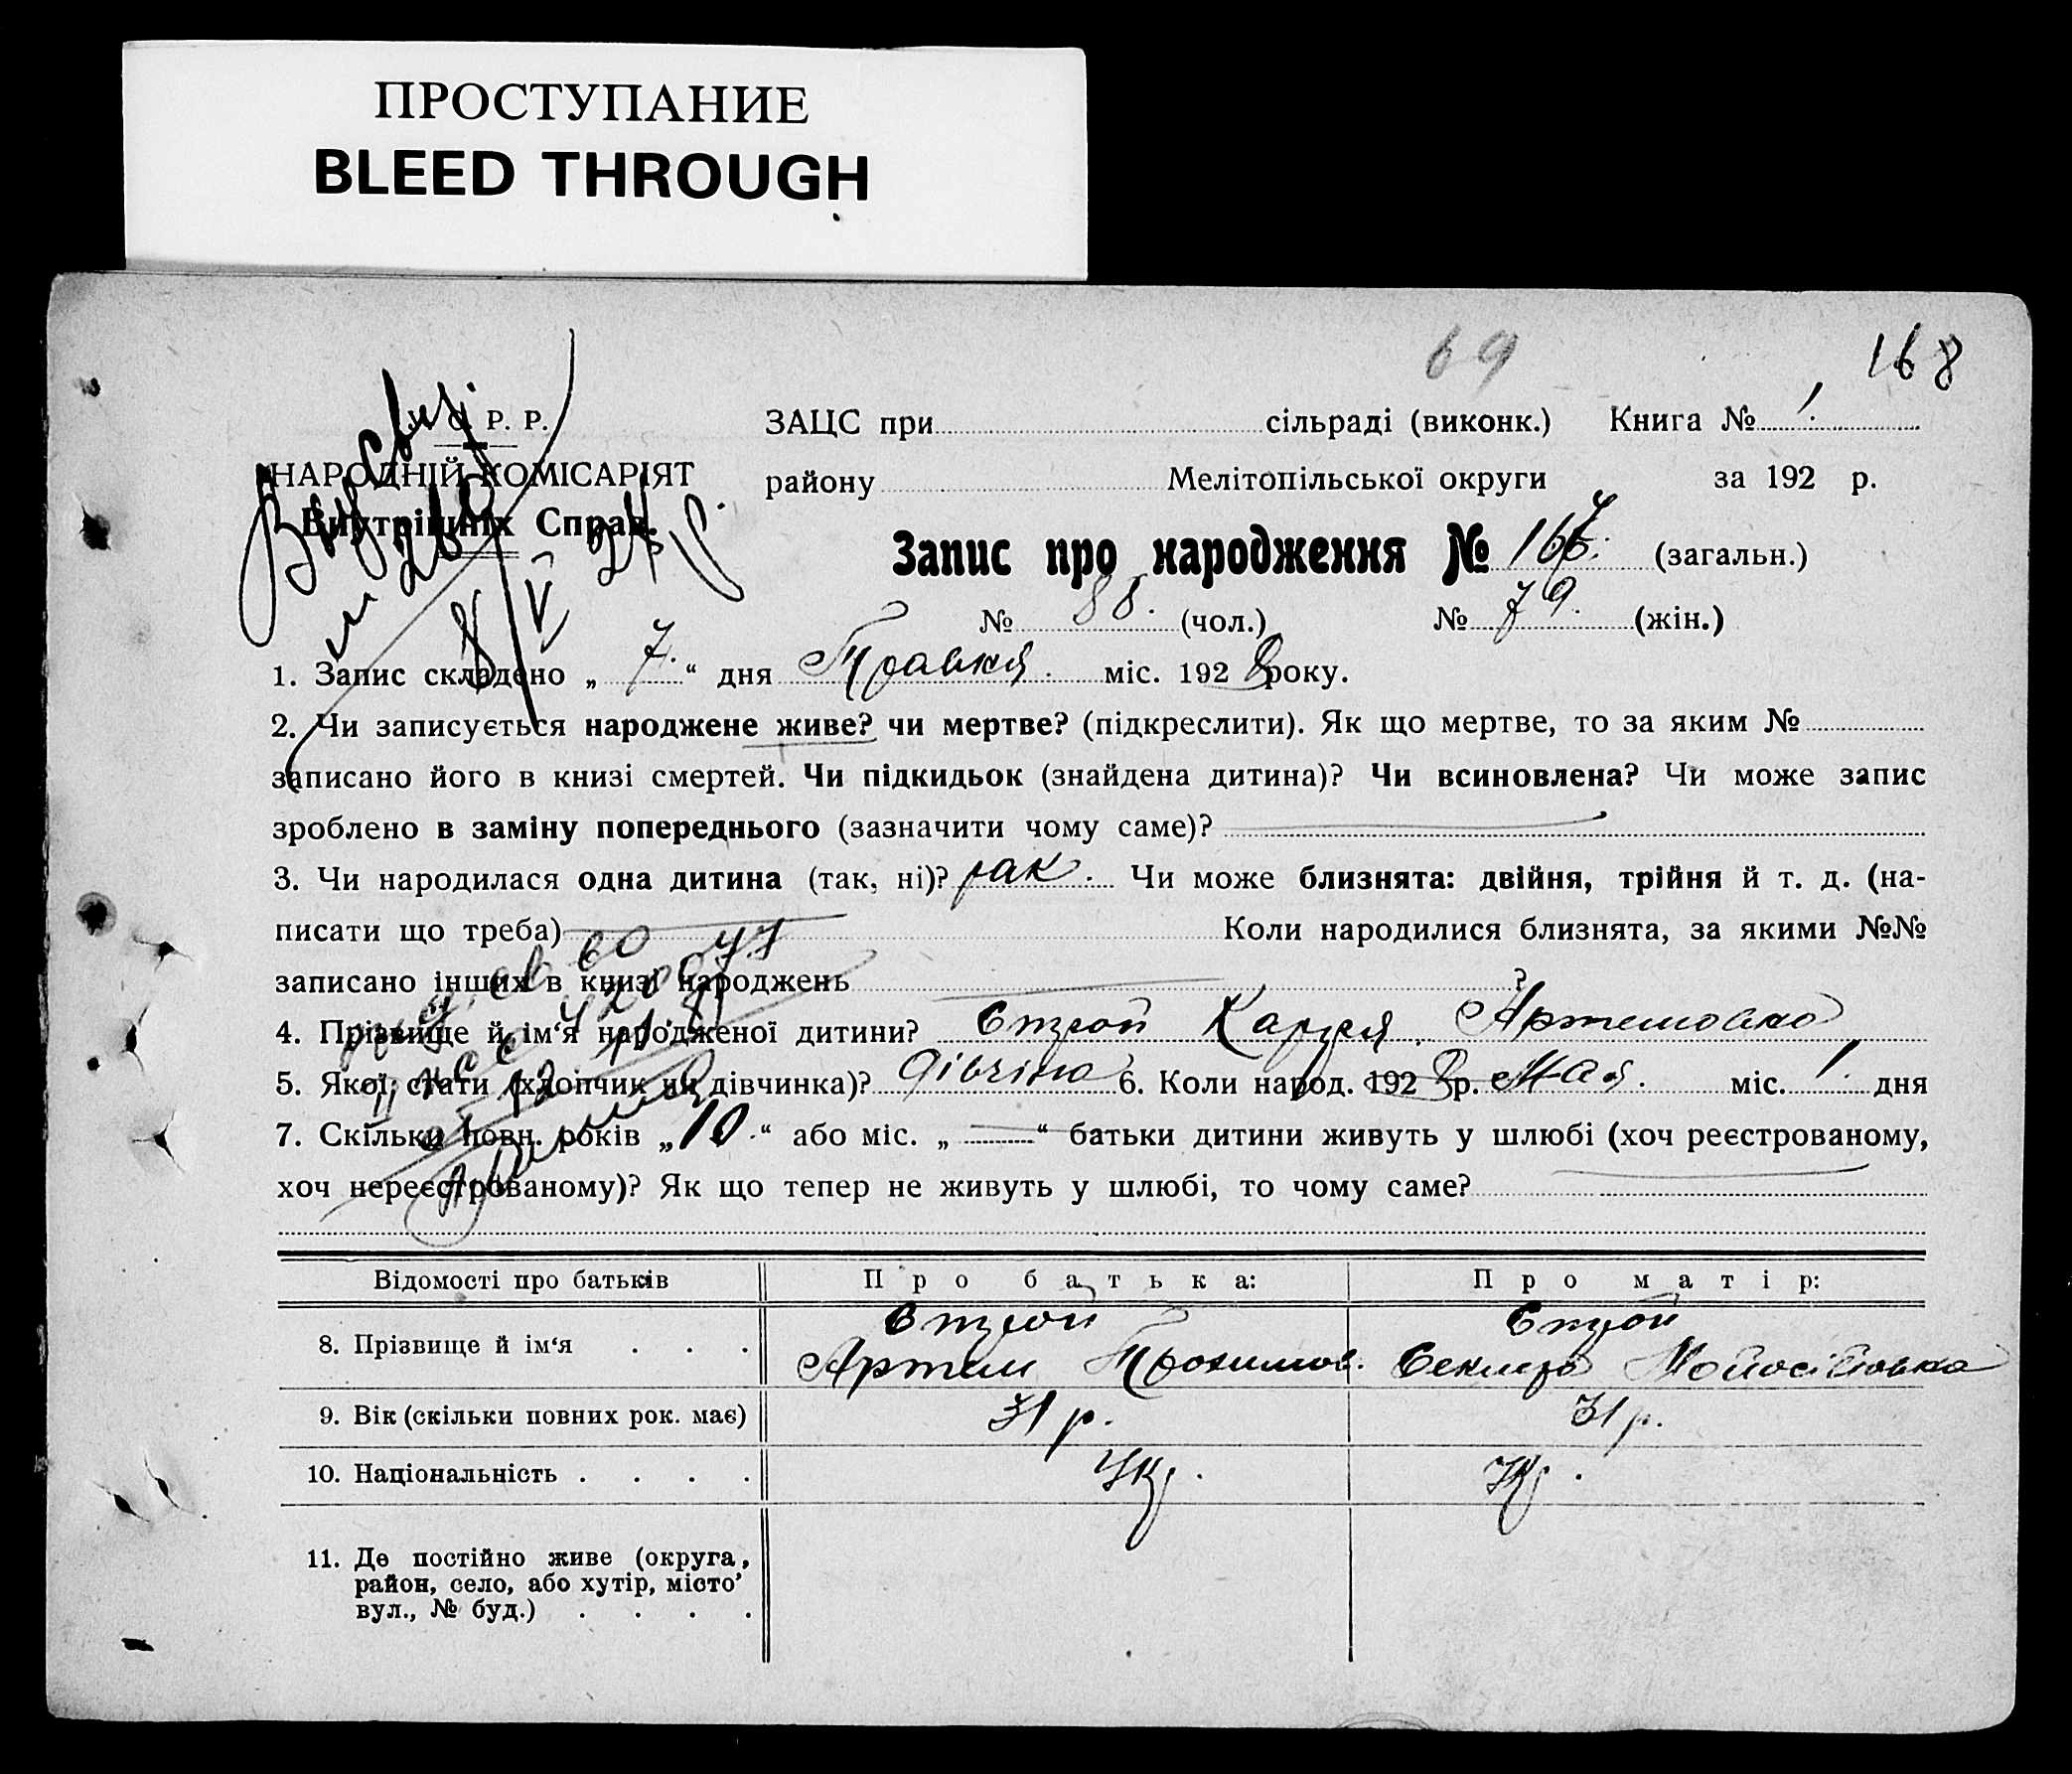 ПРОСТУПАНИЕ
BLEED THROUGH
69 168
С. Р. Р.
НАРОДНІЙ КОМІСАРІЯТ
Внутрішніх Справ.
ЗАЦС при сільраді (виконк.) Книга № 1.
району Мелітопільської округи за 192 р.
Запис про народження № 167. (загальн.)
№ 88. (чол.) № 79. (жін.)
1. Запис складено „ 7. “ дня Травня. міс. 192 8 року.
2. Чи записується народжене живе? чи мертве? (підкреслити). Як що мертве, то за яким №
записано його в книзі смертей. Чи підкидьок (знайдена дитина)? Чи всиновлена? Чи може запис
зроблено в заміну попереднього (зазначити чому саме)?
3. Чи народилася одна дитина (так, ні)? так. Чи може близнята: двійня, трійня й т. д. (на-
писати що треба) Коли народилися близнята, за якими №№
записано інших в книзі народжень ?
4. Прізвище й ім‘я народженої дитини? Строй Артемовна
5. Якої стати (хлопчик чи дівчинка)? дівчина 6. Коли народ. 192 8 р. Мая. міс. 1. дня
7. Скільки повн. років „ 10. “ або міс. „ “ батьки дитини живуть у шлюбі (хоч реєстрованому,
хоч нереєстрованому)? Як що тепер не живуть у шлюбі, то чому саме?
Відомості про батьків Про батька: Про матір:
8. Прізвище й ім‘я . . . Строй Строй
Артем
9. Вік (скільки повних рок. має) 31 р. 31 р.
10. Національність . . . . Укр. Укр.
11. Де постійно живе (округа,
район, село, або хутір, місто’
вул., № буд.) . . . .